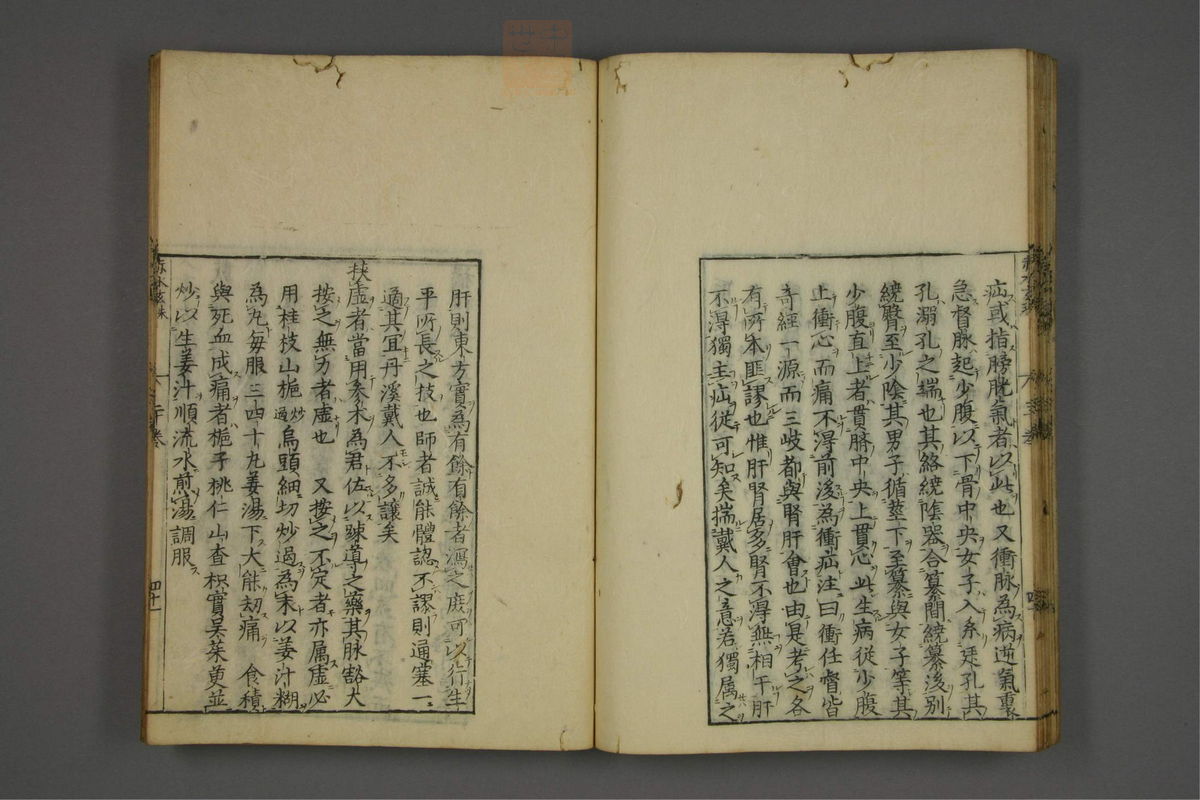 疝或指膀胱氣者以此也又衝脉為病逆氣裏
急督脉起少腹以下骨中央女子入系廷孔其
孔溺孔之端也其絡繞陰器合篡間繞篡後別
繞臀至少陰其男子循莖下至篡與女子等其
少腹直上者貫臍中央上貫心此生病從少腹
上衝心而痛不得前後為衝疝注曰衝任督皆
奇經一源而三岐都與腎肝會也由是考之各
有所本匪謬也惟肝腎居多腎不得無相干肝
不得獨主疝從可知矣揣戴人之意若獨属之
肝則東方實為有餘有餘者瀉之庶可以行生
平所長之技也師者誠能體認不謬則通塞一一
適其宜丹溪戴人不多讓矣
扶虚者當用參朮為君佐以踈導之藥其脉豁大
按之無力者虚也 又按之不定者亦属虚必
用桂枝山梔炒過烏頭細切炒過為末以姜汁糊
為丸每服三四十九姜湯下大能劫痛 食積
與死血成痛者梔子桃仁山查枳實吳茱萸並
炒以生姜汁順流水煎湯調服
赤水玄珠
卷
四十一